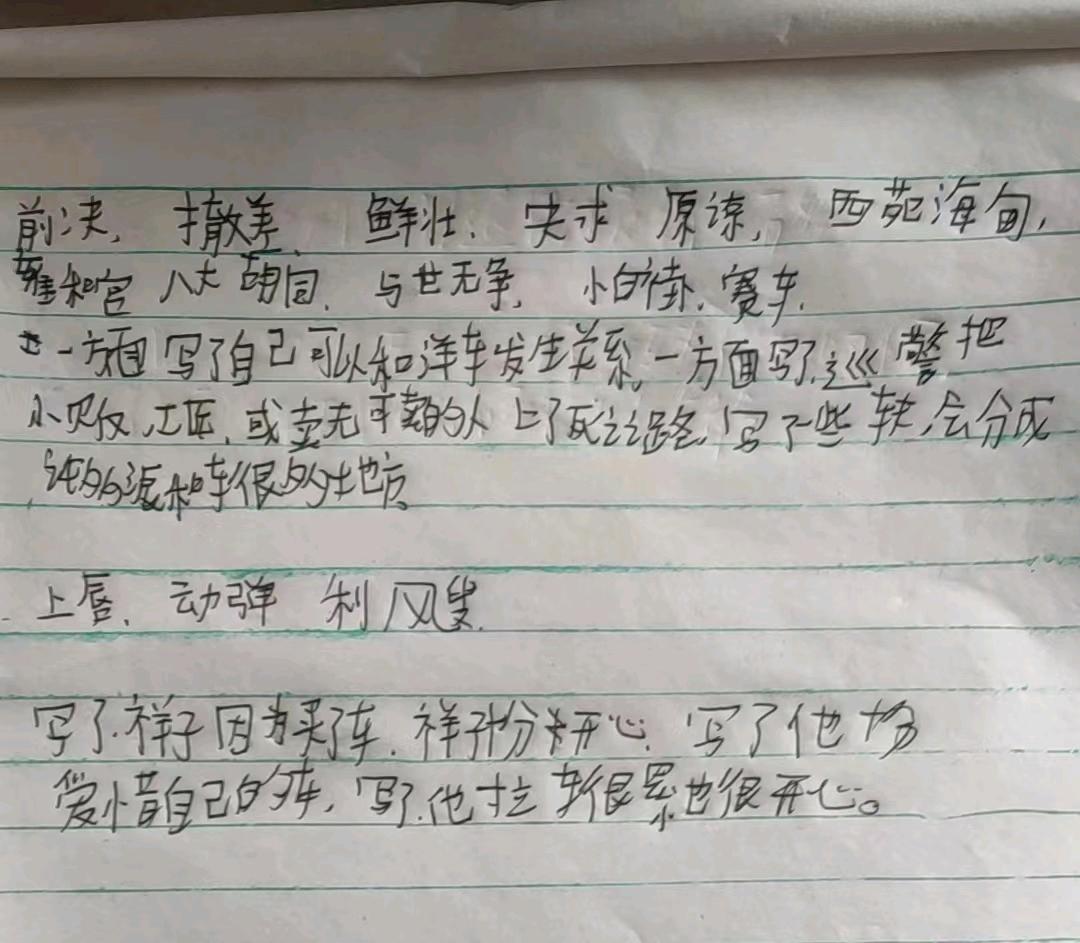 前决, 撤差, 鲜壮, 央求 原谅, 西苑海甸,
雍和宫 八大胡同, 与世无争, 小白褂, 赛车,
一方面写了自己可以和洋车发生关系,一方面写了,巡警把
小贩,工匠,或卖无可卖的人上了死之路,写了一些 会分成
派和车很多地方。
上唇、动弹 利风
写了祥子因为买了车,祥子十分开心,写了他十分
爱惜自己的车,写了他拉车很累也很开心。